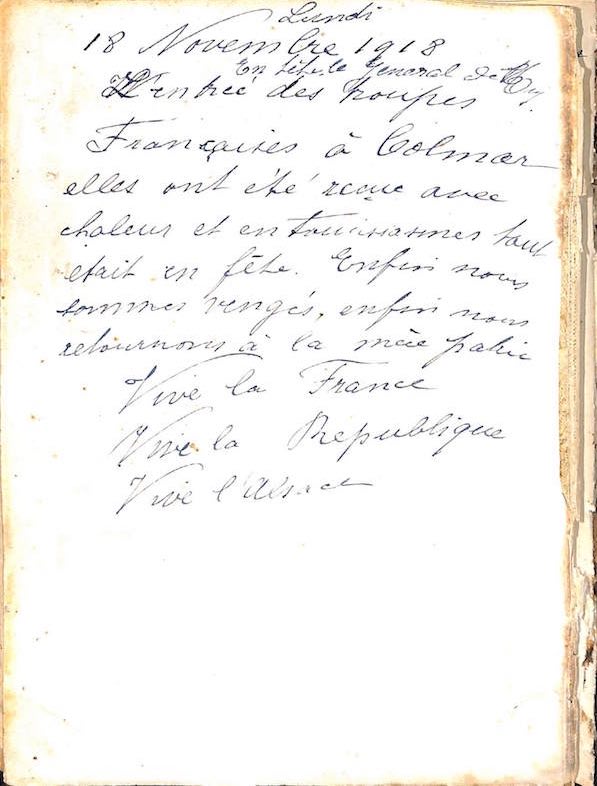 Lundi
18 Novembre 1918
En tête le General de
L'entrée des troupes
Françaises à Colmar
elles ont été reçue avec
chaleur et entousiasmes tout
etait en fête. Enfin nous
sommes vengés, enfin nous
retournons à la mère patrie
Vive la France
Vive la Republique
Vive l'Alsace